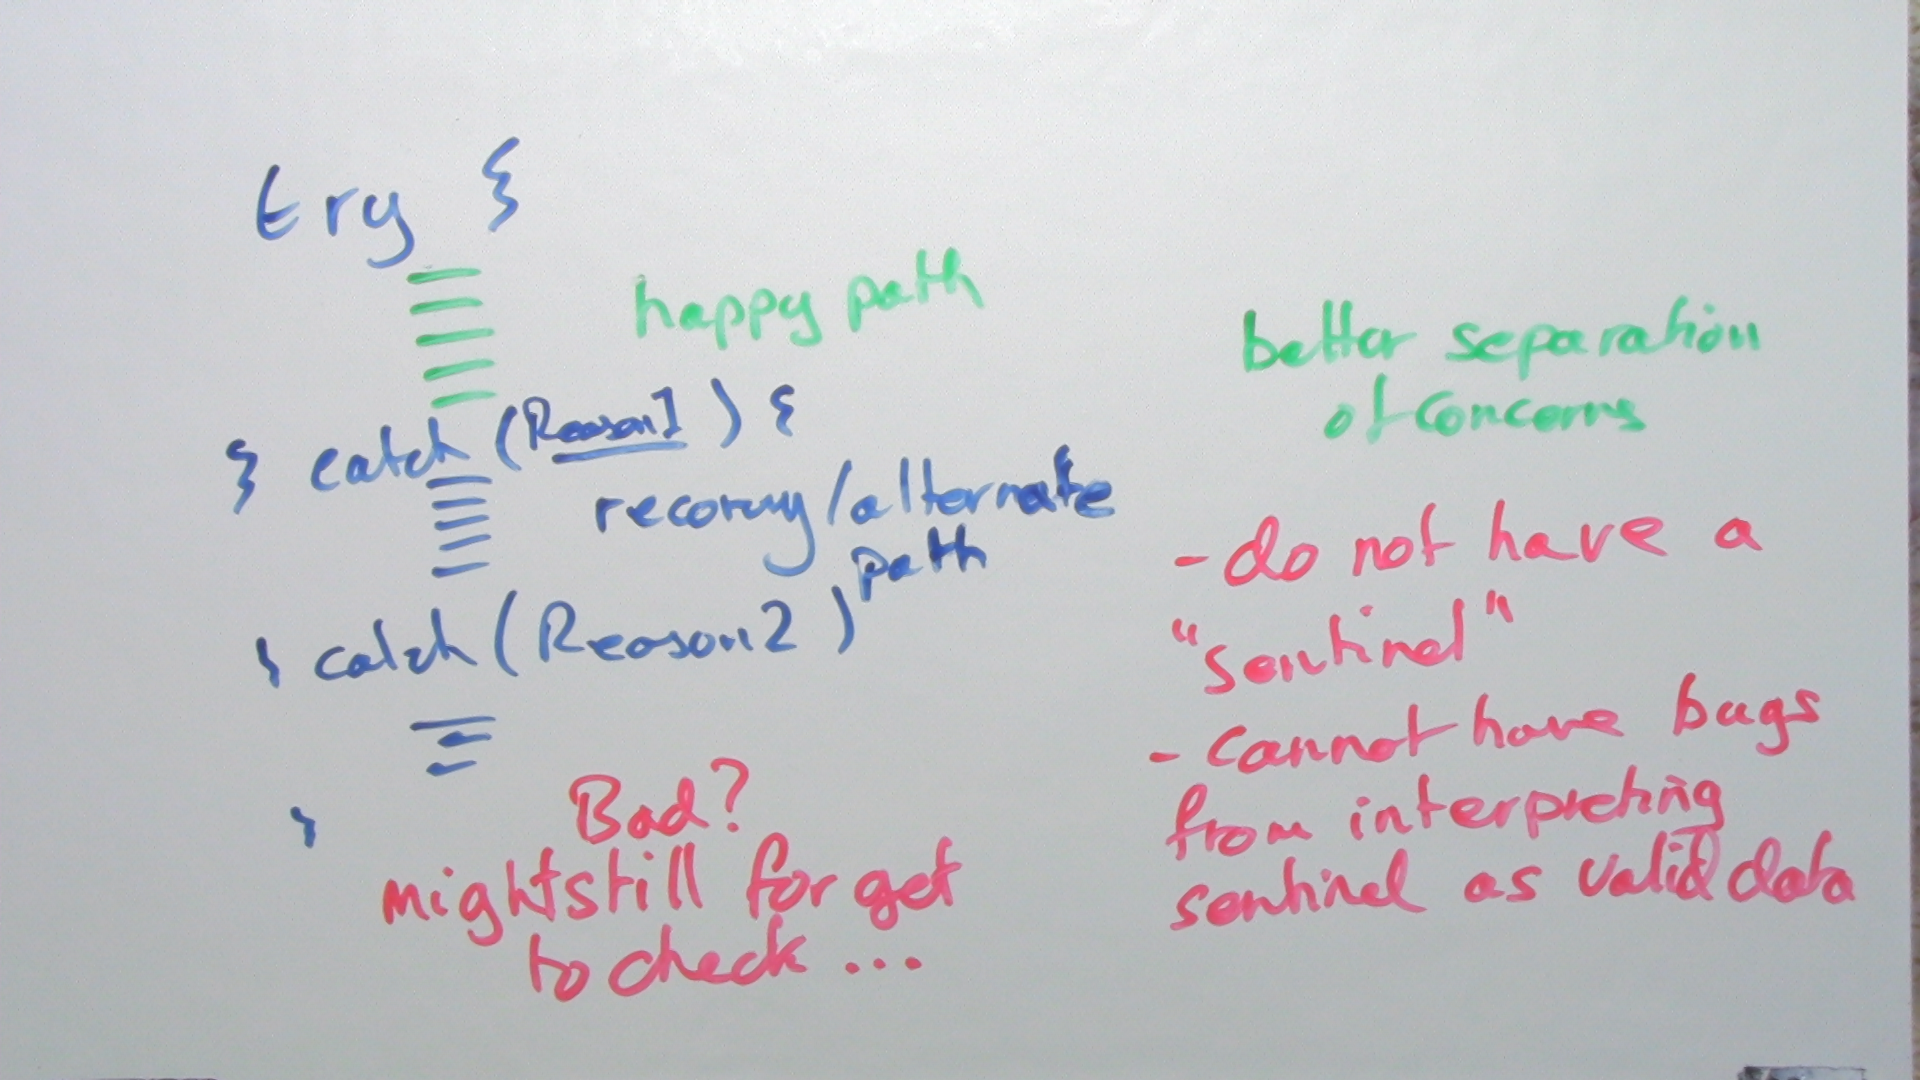 try {
happy path
} catch (Reason1) {
recovery/alternate
path
} catch (Reason2)
}
Bad?
might still forget
to check ...
better separation
of concerns
- do not have a
"sentinel"
- cannot have bugs
from interpreting
sentinel as valid data